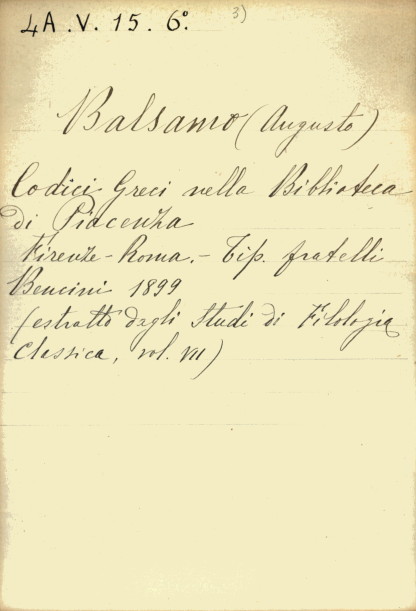 4A. V. 15. 6°. 3)
Balsamo (Augusto)
Codici Greci nella Biblioteca
di Piacenza
Firenze - Roma. - Tip. fratelli
Bencini 1899
(estratto dagli Studi di Filologia
Classica, vol. VII)